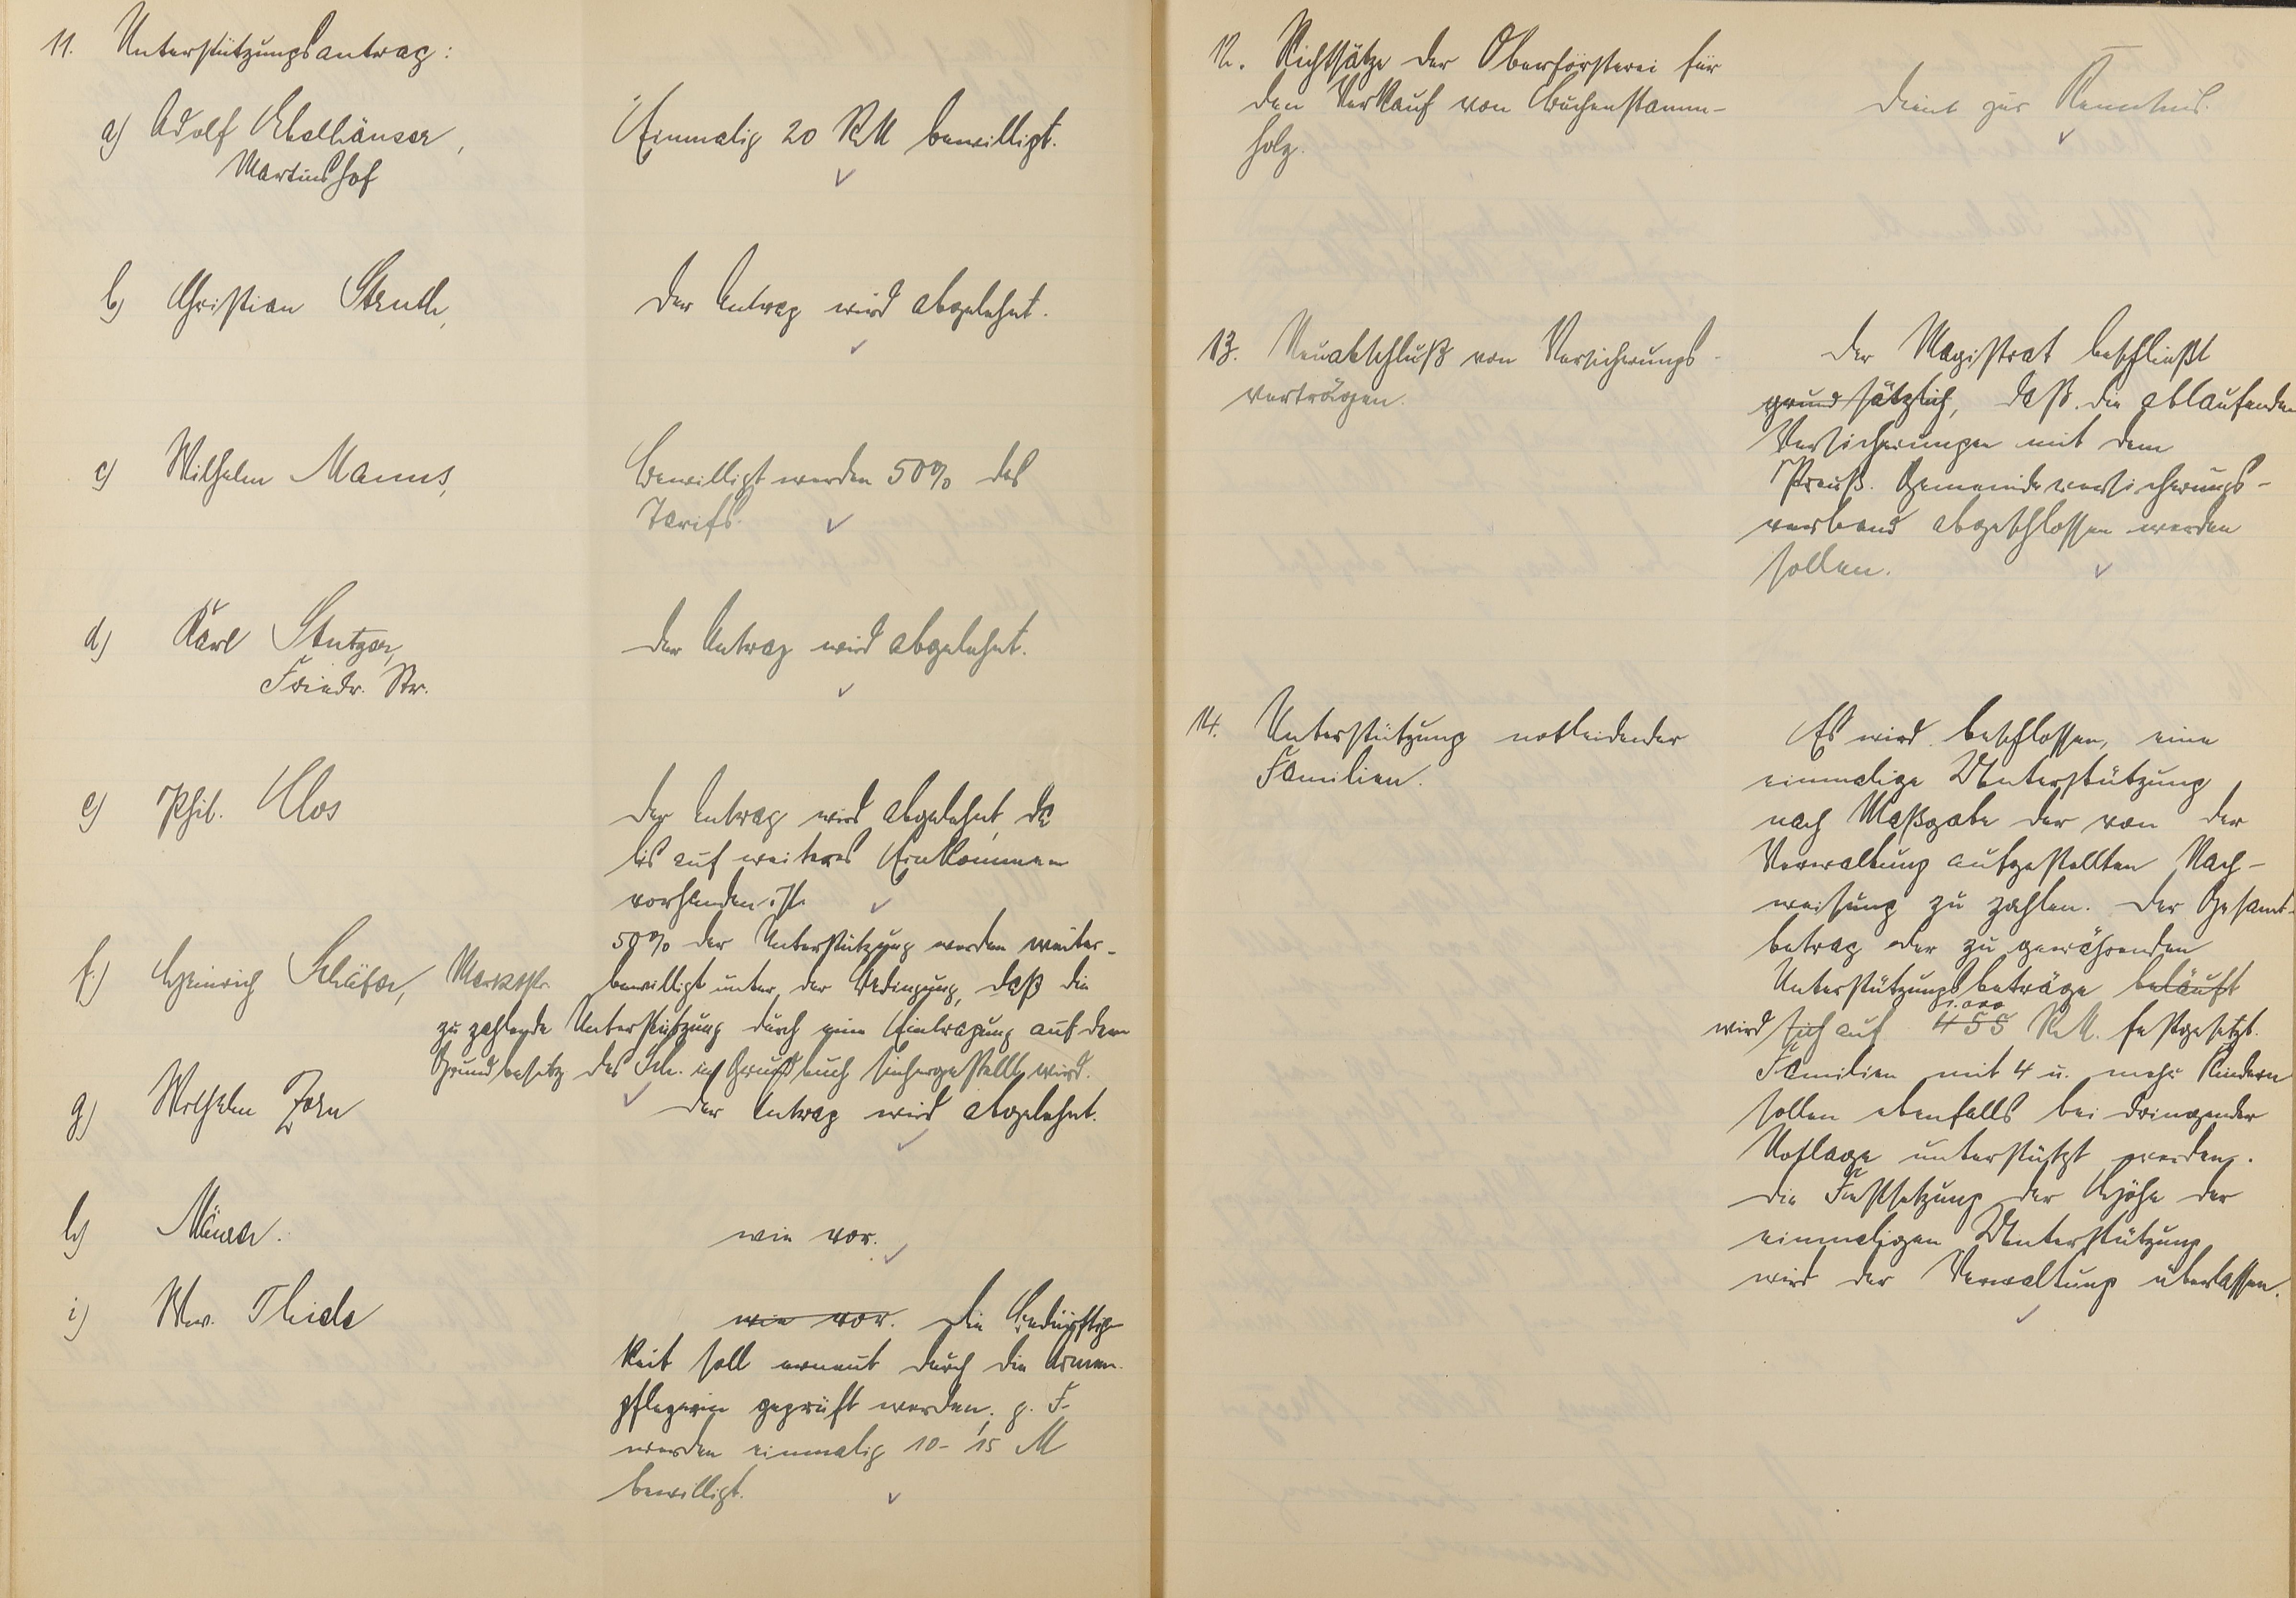 11. Unterstützungsantrag:
a) Adolf Ebelhäuser,
Martinshof
Einmalig 20 RM bewilligt.
b) Christian Struth,
Der Antrag wird abgelehnt.
c) Wilhelm Manns,
Bewilligt werden 50% des
Tarifs.
d) Karl Stutzer,
Friedr. Str.
Der Antrag wird abgelehnt.
e) Phil. Clos
Der Antrag wird abgelehnt, da
bis auf weiteres Einkommen
vorhanden ist.
f.) Heinrich Schäfer, Marktstr.
50% der Unterstützung werden weiter-
bewilligt unter der Bedingung, daß die
zu zahlende Unterstützung durch eine Eintragung auf dem
Grundbesitz des Sch. im Grundbuch sichergestellt wird.
g) Wilhelm Zorn
Der Antrag wird abgelehnt.
h)
wie vor.
i) Ww. Thiele
wie vor. Die Bedürftig-
keit soll erneut durch die Armen-
pflegerin geprüft werden; g. F.
werden einmalig 10-15 M
bewilligt.
12. Richtsätze der Oberförsterei für
den Verkauf von Buchenstamm-
holz.
Dient zur Kenntnis.
13. Neuabschluß von Versicherungs-
verträgen.
Der Magistrat beschließt
grundsätzlich, daß die ablaufenden
Versicherungen mit dem
Preuß. Gemeindeversicherungs-
verband abgeschlossen werden
sollen.
14. Unterstützung notleidender
Familien.
Es wird beschlossen, eine
einmalige Unterstützung
nach Maßgabe der von der
Verwaltung aufgestellten Nach-
weisung zu zahlen. Der Gesamt-
betrag der zu gewährenden
Unterstützungsbeträge beläuft
1.000
wird sich auf 455 RM. festgesetzt.
Familien mit 4 u. mehr Kindern
sollen ebenfalls bei dringender
Notlage unterstützt werden.
Die Festsetzung der Höhe der
einmaligen Unterstützung
wird der Verwaltung überlassen.